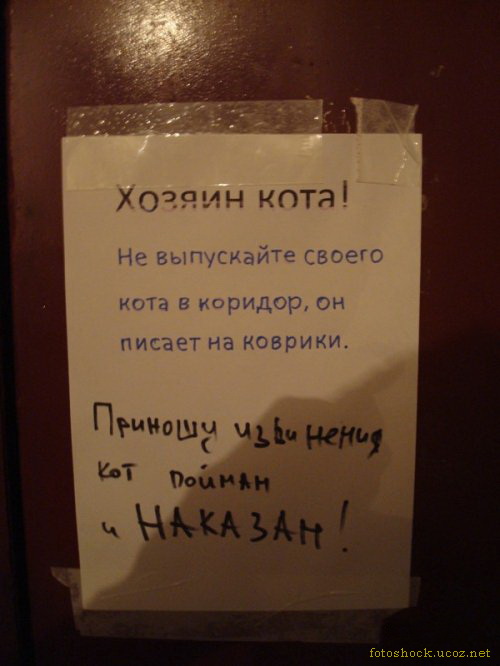 Хозяин кота!
Не выпускайте своего
кота в коридор, он
писает на коврики.
Приношу извинения
кот пойман
и НАКАЗАН!
fotoshock.ucoz.net